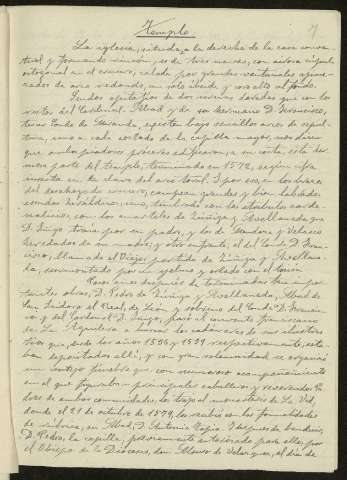 Templo
7
La iglesia, situada a la derecha de la casa conven-
tual y formando rincón, es de tres naves, con airosa cúpula
octogonal en el crucero, calada por grandes ventanales
de arco redondo, un solo ábside y coro alto al fondo.
Sendos epitafios de dos escudos dorados que con los
restos del Cardenal Abad y de su hermano D. Francisco,
tercer Conde de Miranda, existen bajo sencillos arcos de sepul-
tura, uno a cada costado de la capilla mayor, nos dicen
que ambos piadosos próceres edificaron, a su costa, esta her-
mosa parte del templo, terminada en 1572, según cifra
inscrita en la clave del arco toral. Y por eso, en los lados
del crucero, campean grandes y bien labrados
escudos heráldicos; uno, timbrado con los atributos carde-
nalicios, con los cuarteles de Zúñiga y Avellaneda que
D. Íñigo tomó por su padre, y los de Mendoza y Velasco
heredados de su madre; y otro enfrente, el del Conde D. Fran-
cisco, llamado el Viejo, partido de Zúñiga y Avellane-
da, surmontado por un yelmo y orlado con el toisón.
Pocos años después de terminadas tan impor-
tante obras, D. Pedro de Zúñiga y Avellaneda, Abad de
San Isidoro el Real, de León y sobrino del Conde D. Francis-
co y del Cardenal D. Íñigo, pasó al convento franciscano
de La Aguilera a tomar los cadáveres de sus ilustres
tíos que, desde los años 1536 y 1539 respectivamente, esta-
ban depositados allí, y con gran solemnidad se organizó
un cortejo fúnebre que, con numeroso acompañamiento
en el que figuraban principales caballeros y reverendos Pa-
dres de ambas comunidades, los trajo al monasterio de La Vid,
donde el 21 de octubre de 1579, los recibió con las formalidades
de rúbrica, su Abad, D. Antonio
D. Pedro, la capilla, para ello, por
el Obispo de la Diócesis, don Alonso de Velázquez, el día de